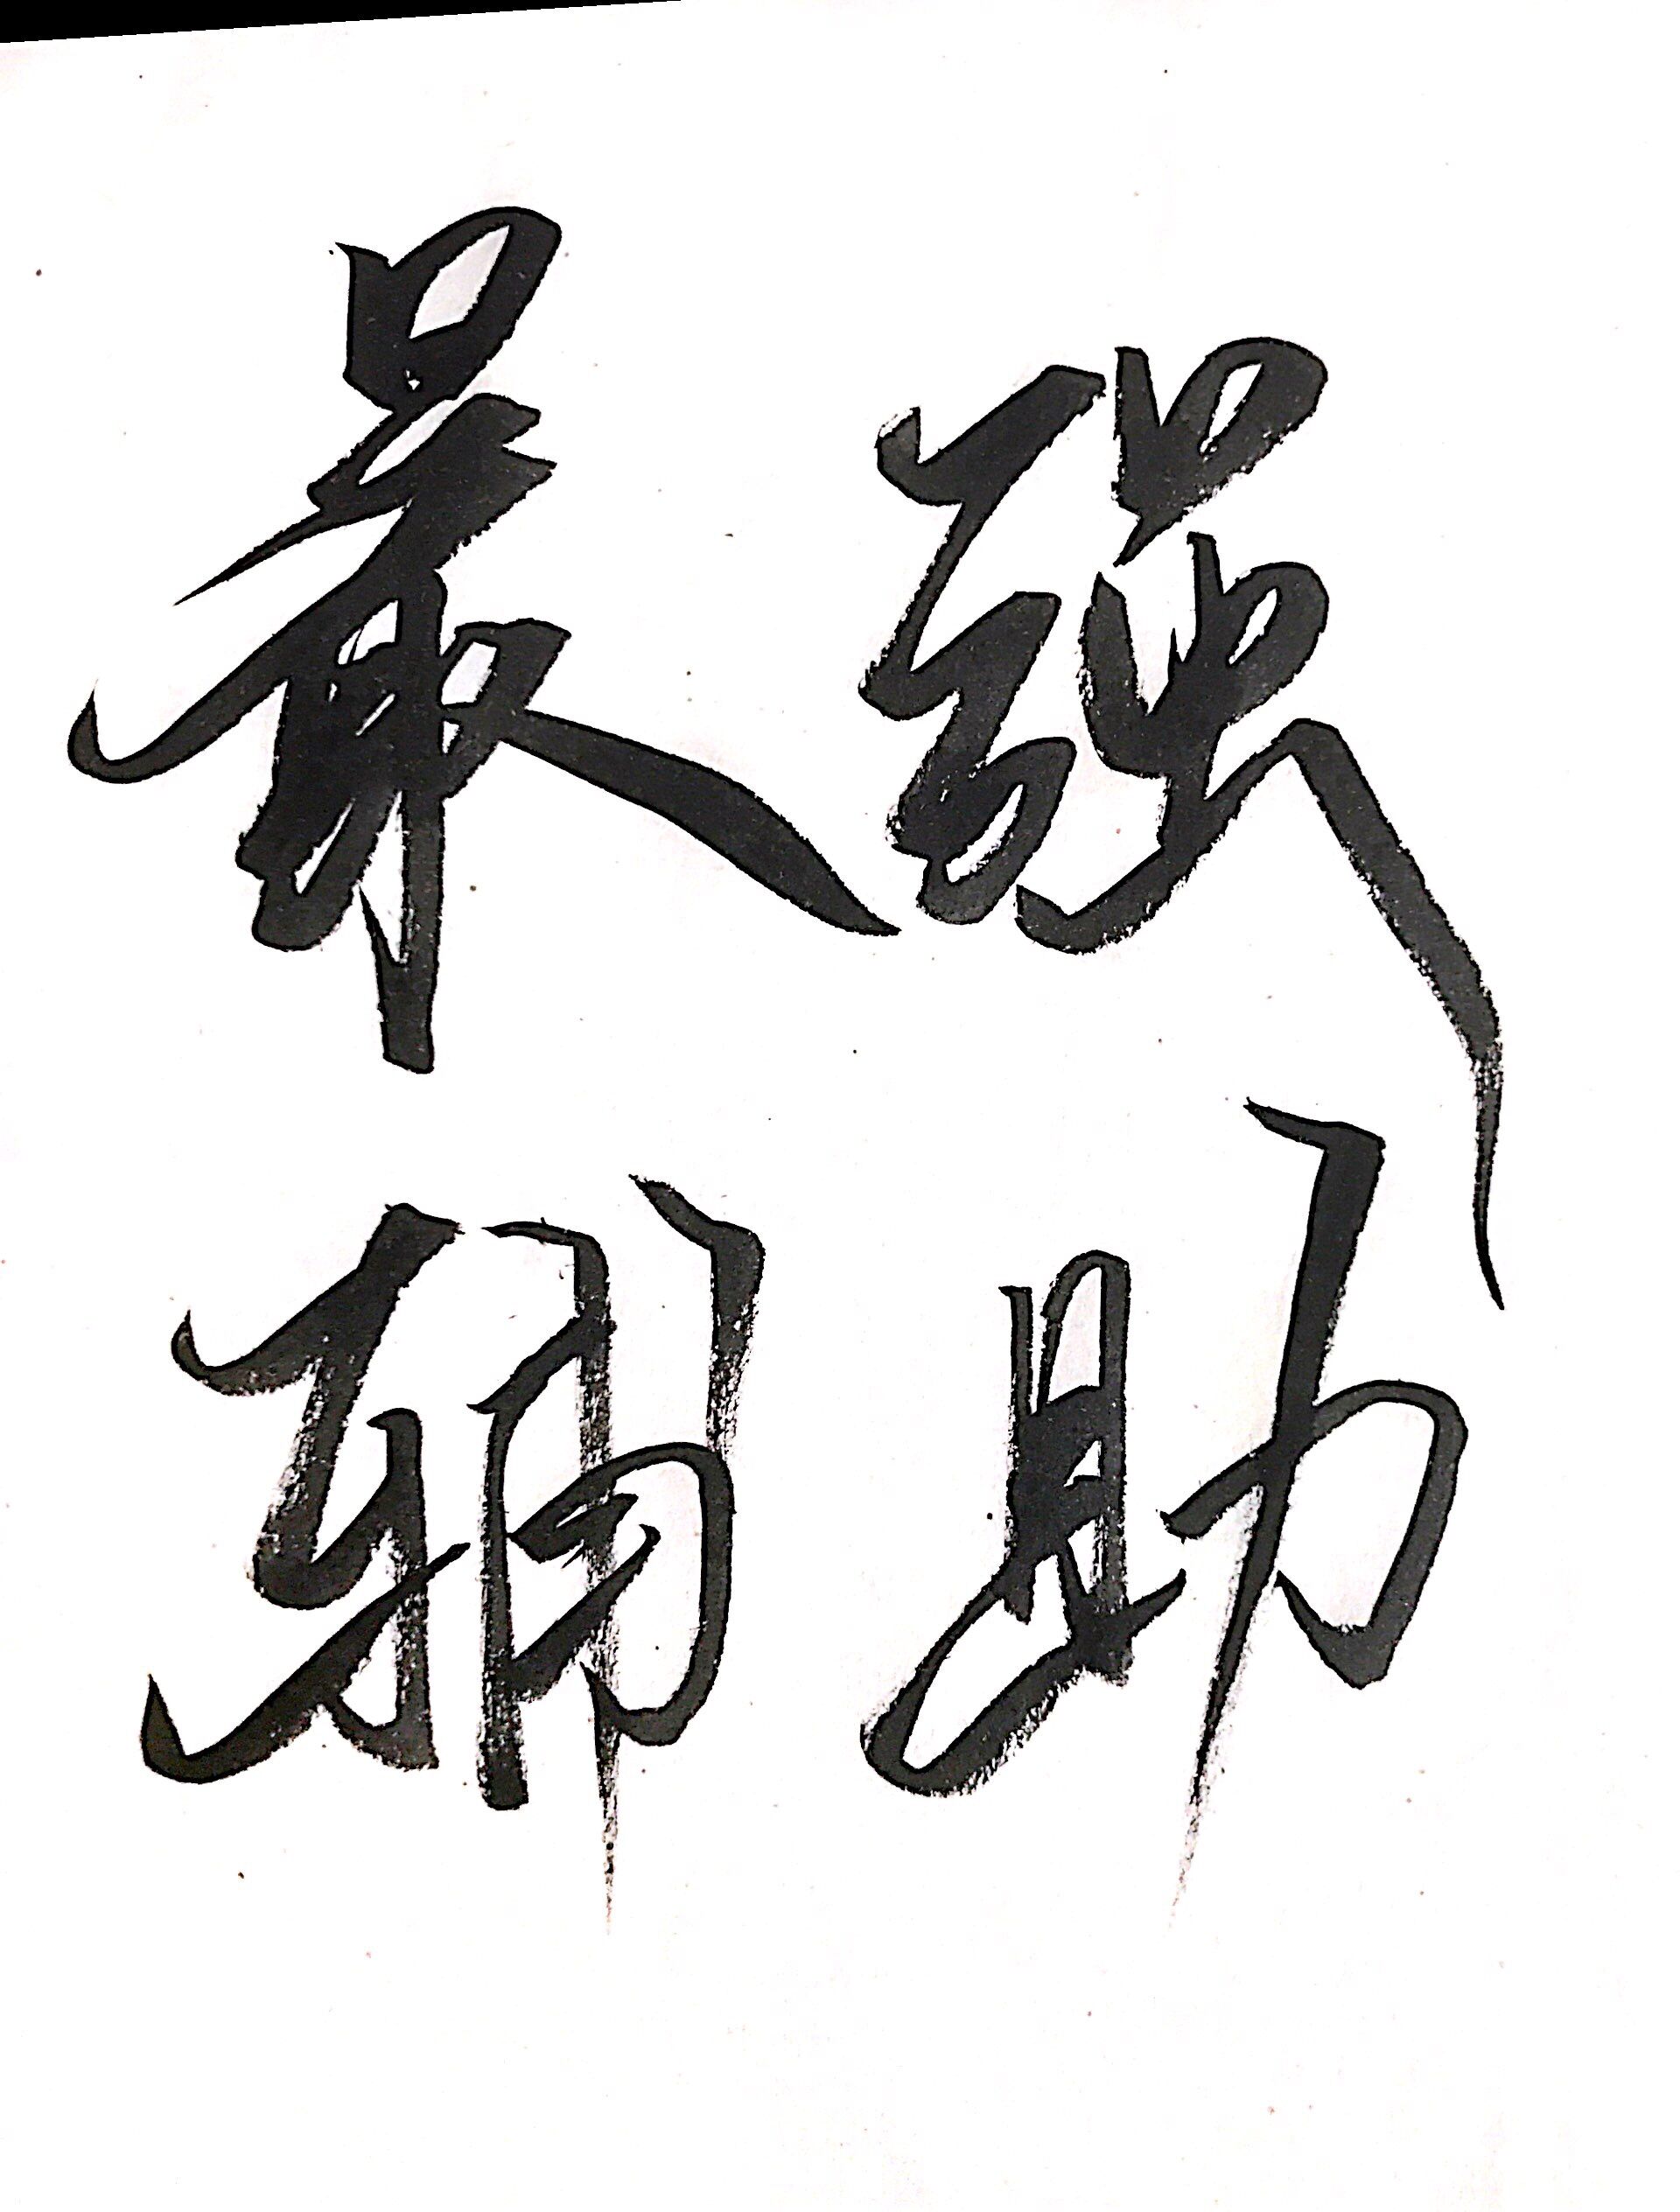 最强
辅助